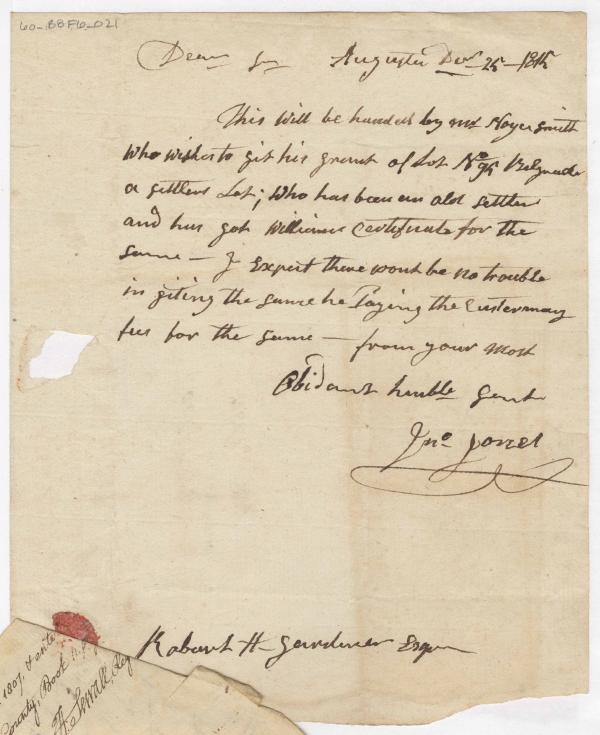 60-BBF6-021
Dear Sir Augusta Decr 25 - 18
This will be handed by mr Noyes Smith
who wishes to git his grant of Lot No 95 Belgrade
a settlers Lot; who has been an old settler
and has got Williams Certificate for the
same — I Expect there wont be no trouble
in giting the same he Paying the Custermary
fees for the same — from your most
Obidant humble Sert
Jno Jones
Robart H Gardiner Esqr
1807, & ente
County, Book
H. Sewall, Reg